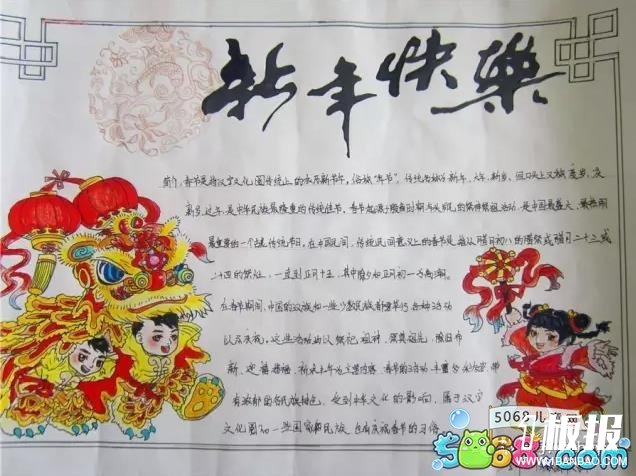 新年快樂
春节是指汉字文化圈传统上的农历新年,俗称"年节",传统名称为新年、大年、新岁,但口头上又称度岁、庆
新岁、过年,是中华民族最隆重的传统佳节,春节起源于殷商时期年头岁尾的祭神祭祖活动,是中国最盛大、最热闹
最重要的一个古老传统节日,在中国民间,传统民间意义上的春节是指从腊月初八的腊祭或腊月二十三或
二十四的祭灶,一直到正月十五,其中除夕和正月初一为高潮。
在春节期间,中国的汉族和一些少数民族都要举行各种活动
以示庆祝,这些活动均以祭祀祖神、祭奠祖先、除旧布
新、迎禧接福、祈求丰年为主要内容,春节的活动丰富多彩,带
有浓郁的各民族特色,受到中华文化的影响,属于汉字
文化圈的一些国家和民族也有庆祝春节的习俗
5068儿童网
5068.com
板报
WWW.BANBAO.COM